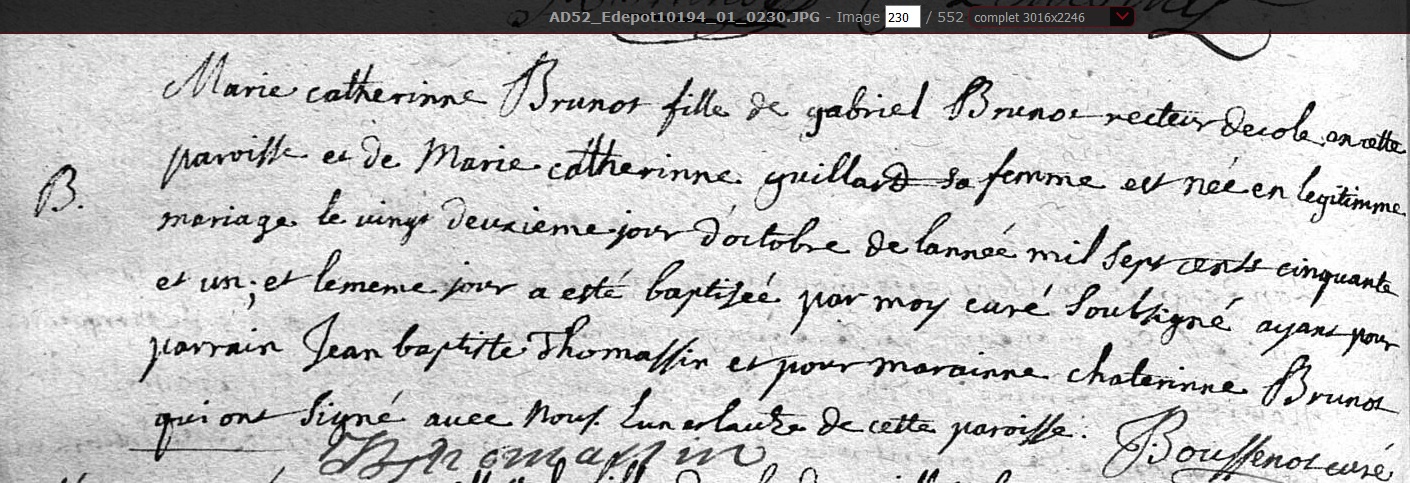 AD52_Edepot10194_01_0230.JPG - Image 230 / 552 complet 3016x2246
Marie catherinne Brunot fille de gabriel Brunot recteur decole en cette
paroisse et de Marie catherinne guillard sa femme est née en legitimme
B. mariage le vingt deuxieme jour d'octobre de lanneé mil sept cents cinquante
et un; et lememe jour a esté baptiseé par moy curé soubsigné ayant pour
parrain Jean baptiste Thomassin et pour marainne chaterinne Brunot
qui ont signé avec nous. lun et lautre de cette paroisse.
B Thomassin Boussenot curé